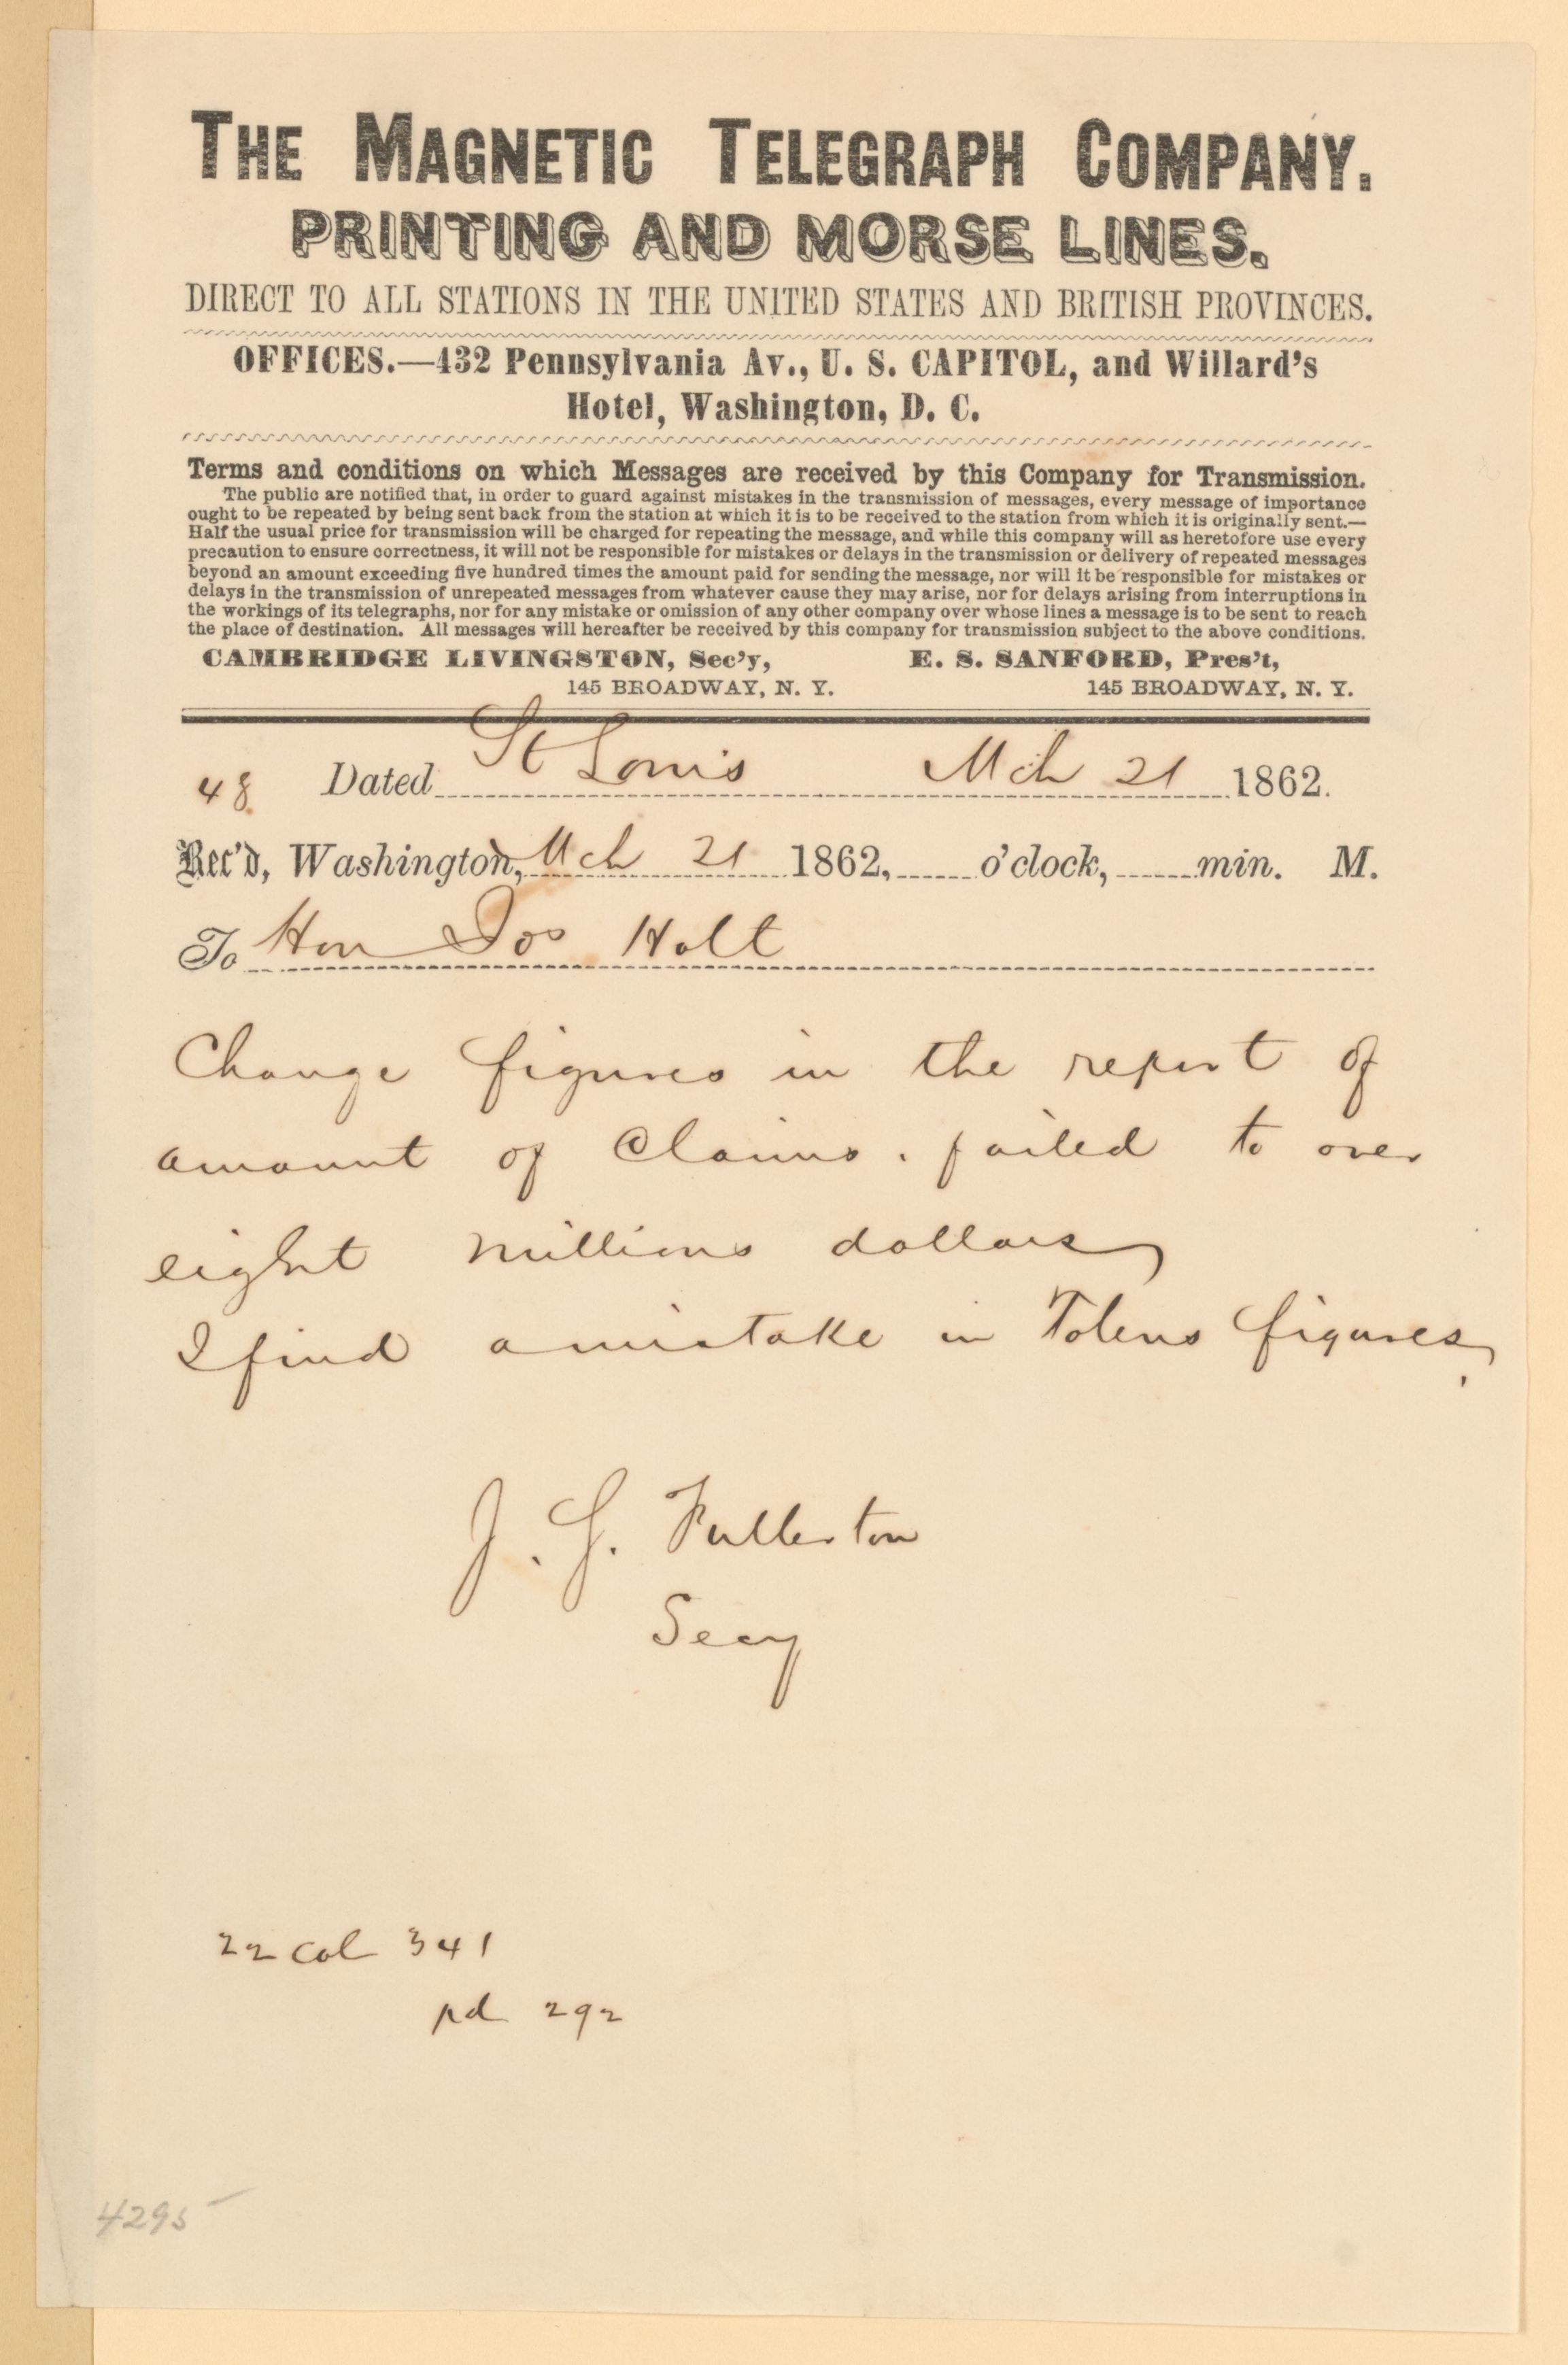 THE MAGNETIC TELEGRAPH COMPANY.
PRINTING AND MORSE LINES.
DIRECT TO ALL STATIONS IN THE UNITED STATES AND BRITISH PROVINCES.
OFFICES.—432 Pennsylvania Av., U. S. CAPITOL, and Willard's
Hotel, Washington, D. C.
Terms and conditions on which Messages are received by this Company for Transmission.
The public are notified that, in order to guard against mistakes in the transmission of messages, every message of importance
ought to be repeated by being sent back from the station at which it is to be received to the station from which it is originally sent.—
Half the usual price for transmission will be charged for repeating the message, and while this company will as heretofore use every
precaution to ensure correctness, it will not be responsible for mistakes or delays in the transmission or delivery of repeated messages
beyond an amount exceeding five hundred times the amount paid for sending the message, nor will it be responsible for mistakes or
delays in the transmission of unrepeated messages from whatever cause they may arise, nor for delays arising from interruptions in
the workings of its telegraphs, nor for any mistake or omission of any other company over whose lines a message is to be sent to reach
the place of destination. All messages will hereafter be received by this company for transmission subject to the above conditions.
CAMBRIDGE LIVINGSTON, Sec'y, E. S. SANFORD, Pres't,
145 BROADWAY, N. Y. 145 BROADWAY, N. Y.
48 Dated St Louis Mch 21 1862.
Rec'd, Washington, Mch 21 1862, o'clock, min. M.
To Hon Jos Holt
Change figures in the report of
amount of Claims. failed to over
eight millions dollars
I find a mistake in figures,
J. S. Fullerton
Secy
22 Col 341
pd 292
4295